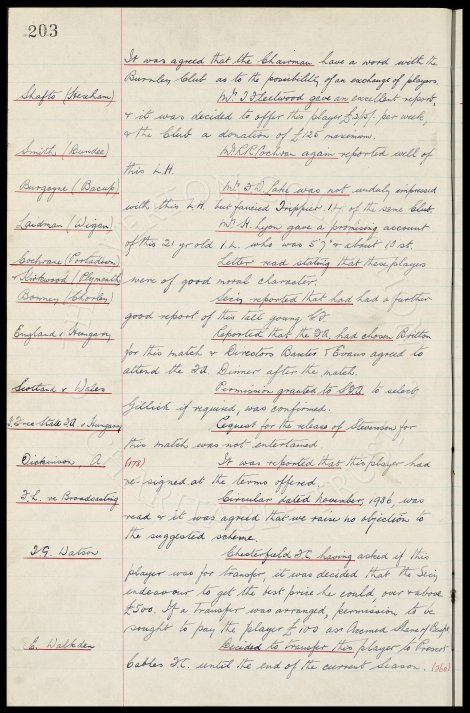 203
It was agreed that the Chairman have a word with the
Burnley Club as to the possibility of an exchange of players.
Shafto (Hexham) Mr. T. Fleetwood gave an excellent report,
& it was decided to offer this player £3/5/- per week,
& the Club a donation of £125 maximum.
Smith (Dundee) Mr. R.R. Cochran again reported well of
this L.H.
Burgoyne (Bacup) Mr. F.D. Lake was not unduly impressed
with this L.H. but fancied Trippier I.L. of the same Club.
Laidman (Wigan) Mr. H. Lyon gave a promising account
of this 21 yr old I.L. who was 5'7" & about 10 st.
Cochrane (Portadown) Letter read stating that these players
& Kirkwood (Plymouth) were of good moral character.
Bonney (Chorley) Secy reported that had had a further
good report of this tall young C.F.
England v. Hungary Reported that the F.A. had chosen Britton
for this match & Directors Baxter & Evans agreed to
attend the F.A. Dinner after the match.
Scotland v Wales Permission granted to S.F.A. to select
Gillick if required, was confirmed.
I. Free State F.A. v Hungary Request for the release of Stevenson for
this match was not entertained.
Dickinson, A (178) It was reported that this player had
re-signed at the terms offered.
F.L. re Broadcasting Circular dated November, 1936, was
read & it was agreed that we raise no objection to
the suggested scheme.
T.G. Watson Chesterfield F.C. having asked if this
player was for transfer, it was decided that the Secy
endeavour to get the best price he could, over & above
£500. If a transfer was arranged, permission to be
sought to pay the player £100 as Accrued Share of Benefit.
E. Walkden Decided to transfer this player to Prescot
Cables F.C. until the end of the current Season. (260)